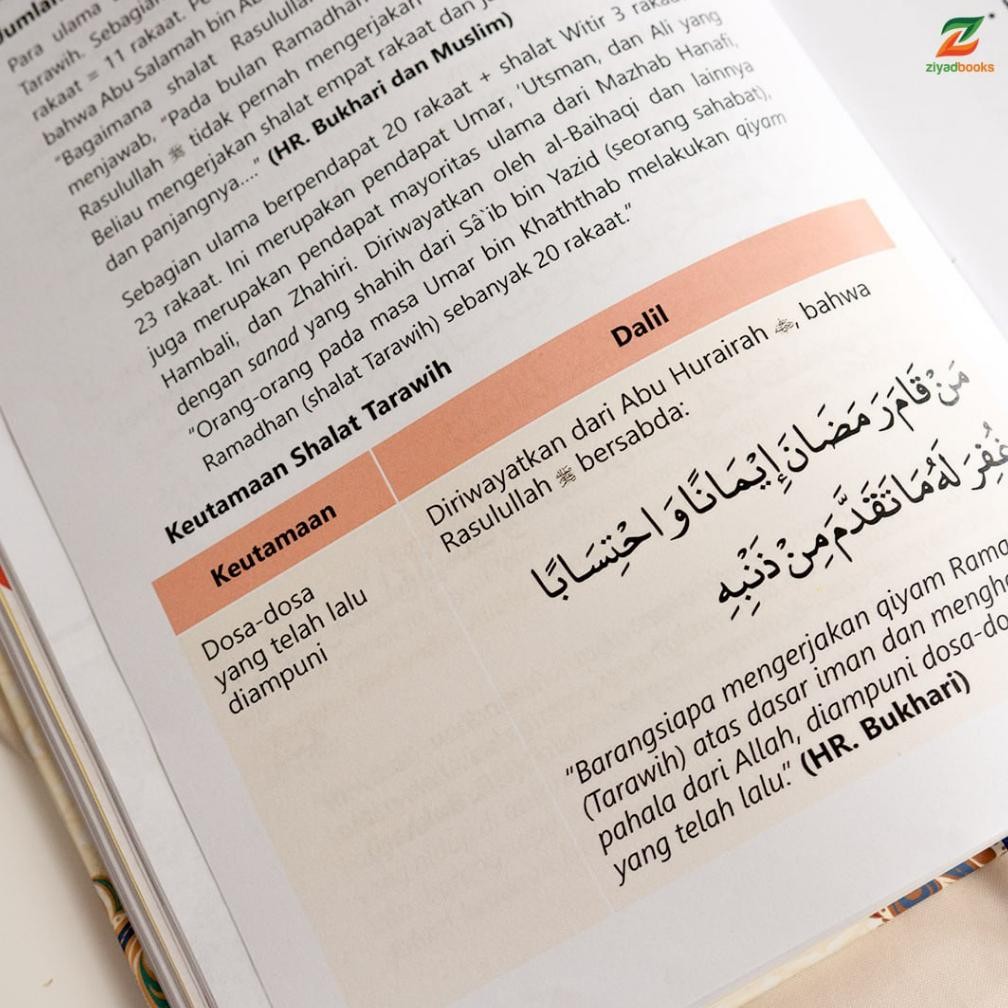 ziyadbooks
Para ulama
Tarawih. Sebagian
rakaat = 11 rakaat.
bahwa Abu Salamah bin
"Bagaimana shalat Rasulullah
menjawab, "Pada bulan Ramadhan
Rasulullah ﷺ tidak pernah mengerjakan
Beliau mengerjakan shalat empat rakaat dan
dan panjangnya...." (HR. Bukhari dan Muslim)
Sebagian ulama berpendapat 20 rakaat + shalat Witir 3
23 rakaat. Ini merupakan pendapat Umar, 'Utsman, dan Ali yang
juga merupakan pendapat mayoritas ulama dari Mazhab Hanafi,
Hambali, dan Zhahiri. Diriwayatkan oleh al-Baihaqi dan lainnya
dengan sanad yang shahih dari Sâ`ib bin Yazid (seorang sahabat),
"Orang-orang pada masa Umar bin Khaththab melakukan qiyam
Ramadhan (shalat Tarawih) sebanyak 20 rakaat."
Keutamaan Shalat Tarawih
Keutamaan
Dalil
Dosa-dosa
yang telah lalu
diampuni
Diriwayatkan dari Abu Hurairah, bahwa
Rasulullah ﷺ bersabda:
مَنْ قَامَ رَمَضَانَ إِيْمَانًا وَاحْتِسَابًا
غُفِرَ لَهُ مَا تَقَدَّمَ مِنْ ذَنْبِهِ
"Barangsiapa mengerjakan qiyam
(Tarawih) atas dasar iman dan
pahala dari Allah, diampuni
yang telah lalu." (HR. Bukhari)